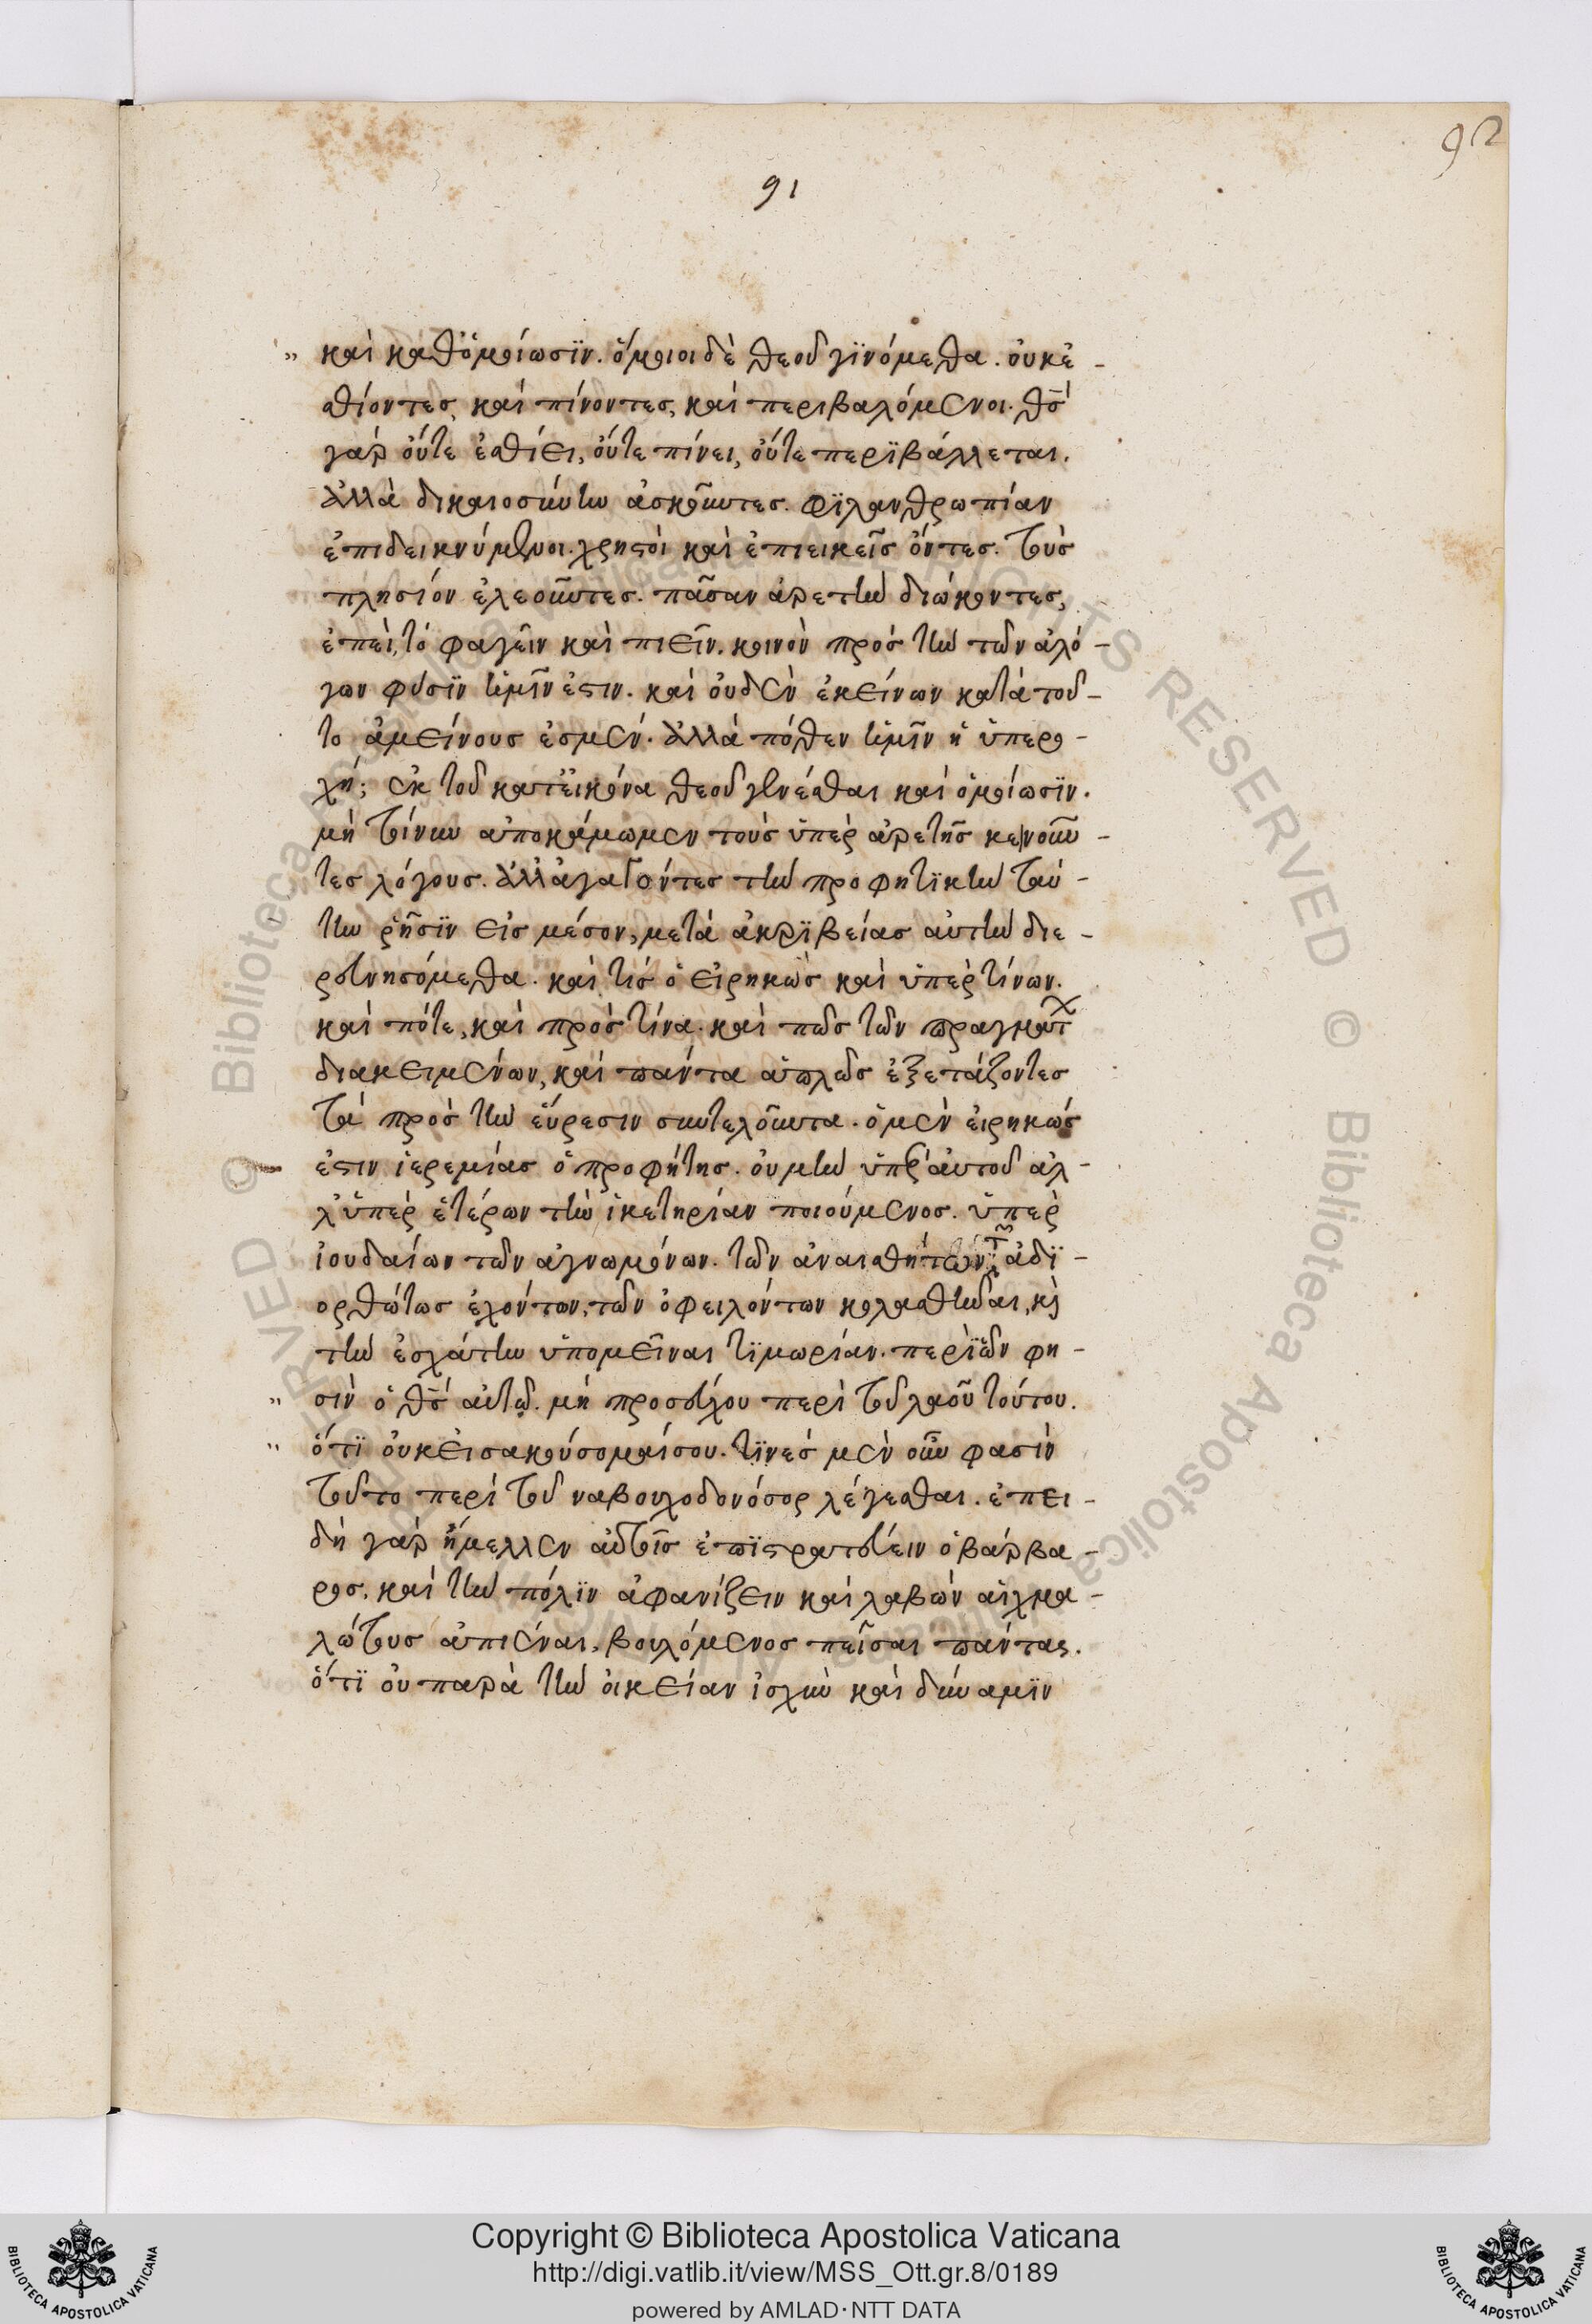 92
91
" καὶ καθ' ὁμοίωσϊν. ὅμοιοι δὲ θεοῦ γϊνόμεθα. οὐκ ἐ-
σθίοντες, καὶ πίνοντες, καὶ περιβαλόμενοι. θς
γὰρ οὔτε ἐσθίει, οὔτε πίνει, οὔτε περϊβάλλεται.
ἀλλὰ δικαιοσύνην ἀσκοῦντες. φϊλανθρωπίαν
ἐπιδεικνύμενοι. χρηστοὶ καὶ ἐπιεικεῖς ὄντες. τοὺς
πλησιόν ἐλεοῦντες. πᾶσαν ἀρετὴν διώκοντες,
ἐπεὶ, τό φαγεῖν καὶ πιεῖν. κοινὸν πρὸς τὴν τῶν ἀλό-
γων φύσϊν ἡμῖν ἐστιν. καὶ οὐδὲν ἐκείνων κατὰ τοῦ-
το ἀμείνους ἐσμέν. ἀλλὰ πόθεν ἡμῖν ἡ ὑπερο-
χή; ἐκ τοῦ κατ' εἰκόνα θεοῦ γενέσθαι καὶ ὁμοίωσϊν.
μὴ τοίνυν ἀποκάμωμεν τοὺς ὑπὲρ ἀρετῆς κενοῦν-
τες λόγους. ἀλλ' ἀγαγόντες τὴν προφητϊκὴν ταύ-
την ῥῆσϊν εἰς μέσον, μετὰ ἀκρϊβείας αὐτὴν διε-
ρευνησόμεθα. καὶ τίς ὁ εἰρηκὼς καὶ ὑπὲρ τίνων.
καὶ πότε, καὶ πρὸς τίνα. καὶ πῶς τῶν πραγμάτ
διακειμένων, καὶ πάντα ἁπλῶς ἐξετάζοντες
τὰ πρὸς τὴν εὕρεσιν συντελοῦντα. ὁ μὲν εἰρηκώς
ἐστιν ἱερεμίας ὁ προφήτης. οὐ μὴν ὑπὲρ αὐτοῦ ἀλ-
λ' ὑπὲρ ἑτέρων τὴν ἱκετηρίαν ποιούμενος. ὑπὲρ
ἰουδαίων τῶν ἀγνωμόνων. τῶν ἀναισθήτων τῶν ἀδϊ-
ορθώτως ἐχόντων, τῶν ὀφειλόντων κολασθῆναι, κὶ
τὴν ἐσχάτην ὑπομεῖναι τϊμωρίαν. περὶ ὧν φη-
" σὶν ὁ θς αὐτῷ. μὴ προσεύχου περὶ τοῦ λαοῦ τούτου.
" ὅτϊ οὐκ εἰσακούσομαί σου. τϊνές μὲν οὖν φασὶν
τοῦτο περὶ τοῦ ναβουχοδονόσορ λέγεσθαι. ἐπει-
δὴ γὰρ ἤμελλεν αὐτοῖς ἐπϊστρατεύειν ὁ βάρβα-
ρος, καὶ τὴν πόλϊν ἀφανίζειν καὶ λαβὼν αἰχμα-
λώτους ἀπιέναι, βουλόμενος πεῖσαι πάντας.
ὅτϊ οὐ παρὰ τὴν οἰκείαν ἰσχὺν καὶ δύναμϊν
Copyright © Biblioteca Apostolica Vaticana
http://digi.vatlib.it/view/MSS_Ott.gr.8/0189
powered by AMLAD·NTT DATA